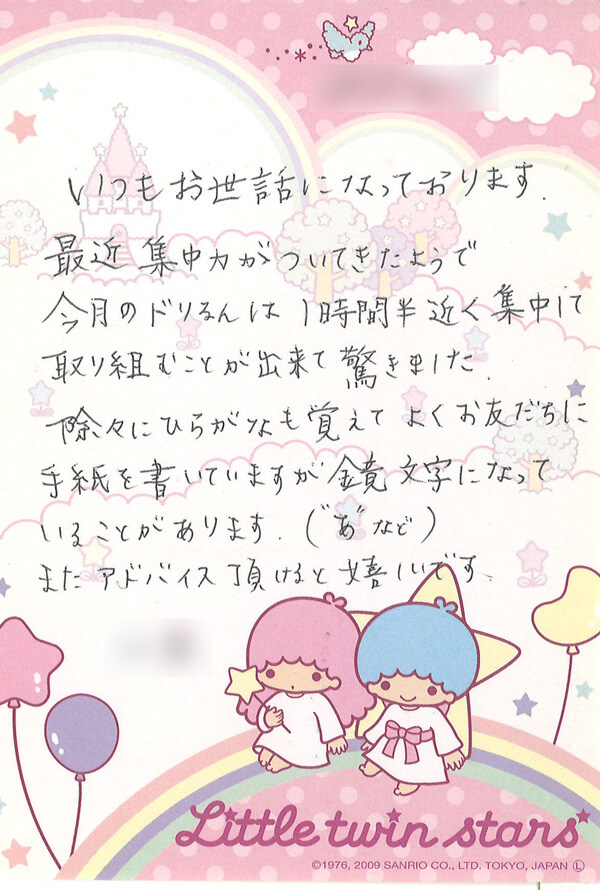 いつもお世話になっております.
最近集中力がついてきたようで
今月のドりるんは1時間半近く集中して
取り組むことが出来て驚きました.
除々にひらがなも覚えてよくお友だちに
手紙を書いていますが鏡文字になって
いることがあります.("あ"など)
またアドバイス頂けると嬉しいです.
Little twin stars
©1976, 2009 SANRIO CO., LTD. TOKYO, JAPAN Ⓛ